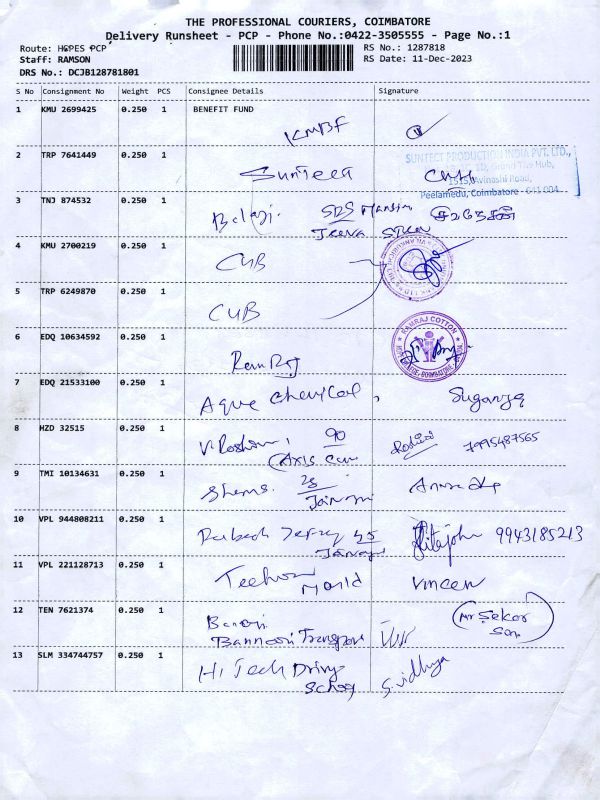 THE PROFESSIONAL COURIERS, COIMBATORE
Delivery Runsheet - PCP - Phone No.:0422-3505555 - Page No.:1
Route: HOPES PCP RS No.: 1287818
Staff: RAMSON RS Date: 11-Dec-2023
DRS No.: DCJB128781801
S No Consignment No Weight PCS Consignee Details Signature
1 KMU 2699425 0.250 1 BENEFIT FUND
KMBF
2 TRP 7641449 0.250 1
SUNTECT PRODUCTION INDIA PVT. LTD.,
Suntecc
Avinashi Road,
Peelamedu, Coimbatore - 641 004
3 TNJ 874532 0.250 1
Balaji. SBS
4 KMU 2700219 0.250 1
CUB
5 TRP 6249870 0.250 1
CUB
6 EDQ 10634592 0.250 1
RAMRAJ COTTON
COIMBATORE
RamRaj
7 EDQ 21533100 0.250 1
Aqua Chemical, Suganya
8 HZD 32515 0.250 1
90 7995487565
Axis
9 TMI 10134631 0.250 1
Shems. 28
10 VPL 944808211 0.250 1
45 9943185213
11 VPL 221128713 0.250 1
World Vincen
12 TEN 7621374 0.250 1
Mr Sekar
Bannari Transport
Son
13 SLM 334744757 0.250 1
Hi Tech Driving S.vidhya
School